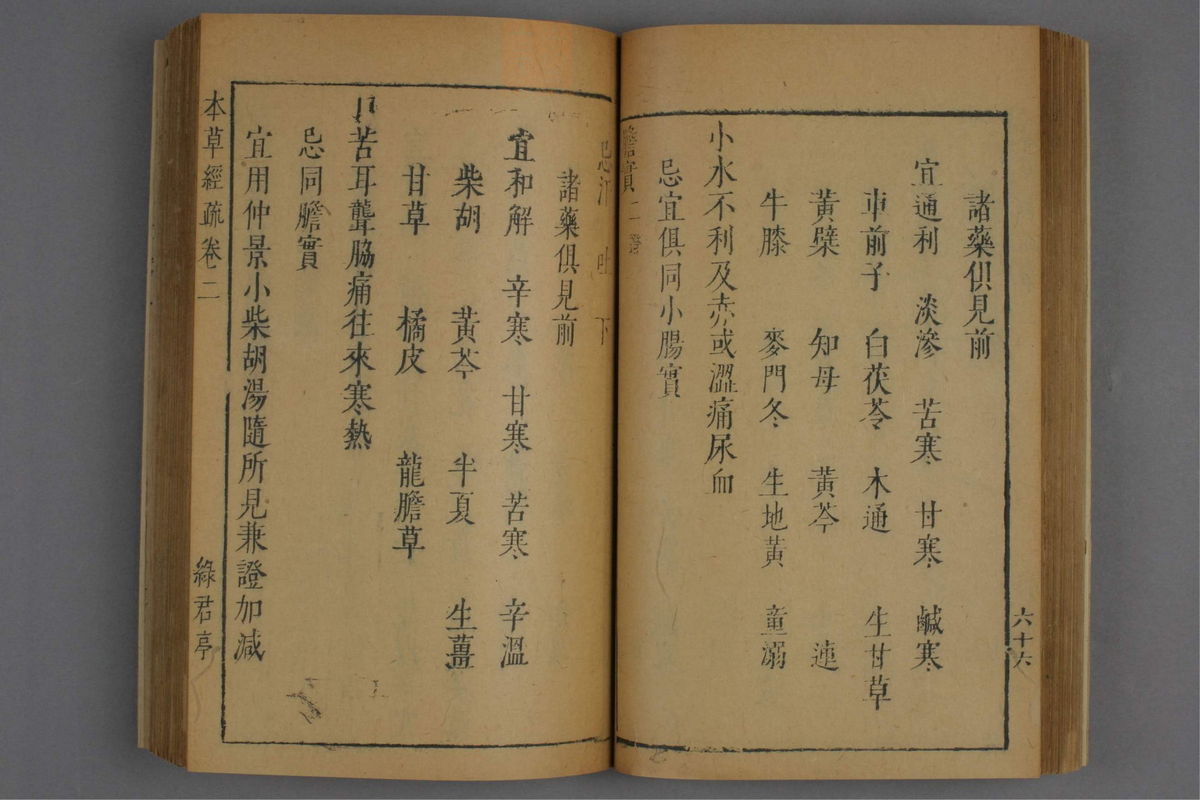 諸藥俱見前
宜通利 淡滲 苦寒 甘寒 鹹寒
車前子 白茯苓 木通 生甘草
黃檗 知母 黃芩 連
牛膝 麥門冬 生地黃 童溺
小水不利及赤或澀痛尿血
忌宜俱同小腸實
膽實二證
六十六
忌汗 吐 下
諸藥俱見前
宜和解 辛寒 甘寒 苦寒 辛溫
柴胡 黃芩 半夏 生薑
甘草 橘皮 龍膽草
口苦耳聾脇痛往來寒熱
忌同膽實
宜用仲景小柴胡湯隨所見兼證加減
本草經疏卷二
綠君亭